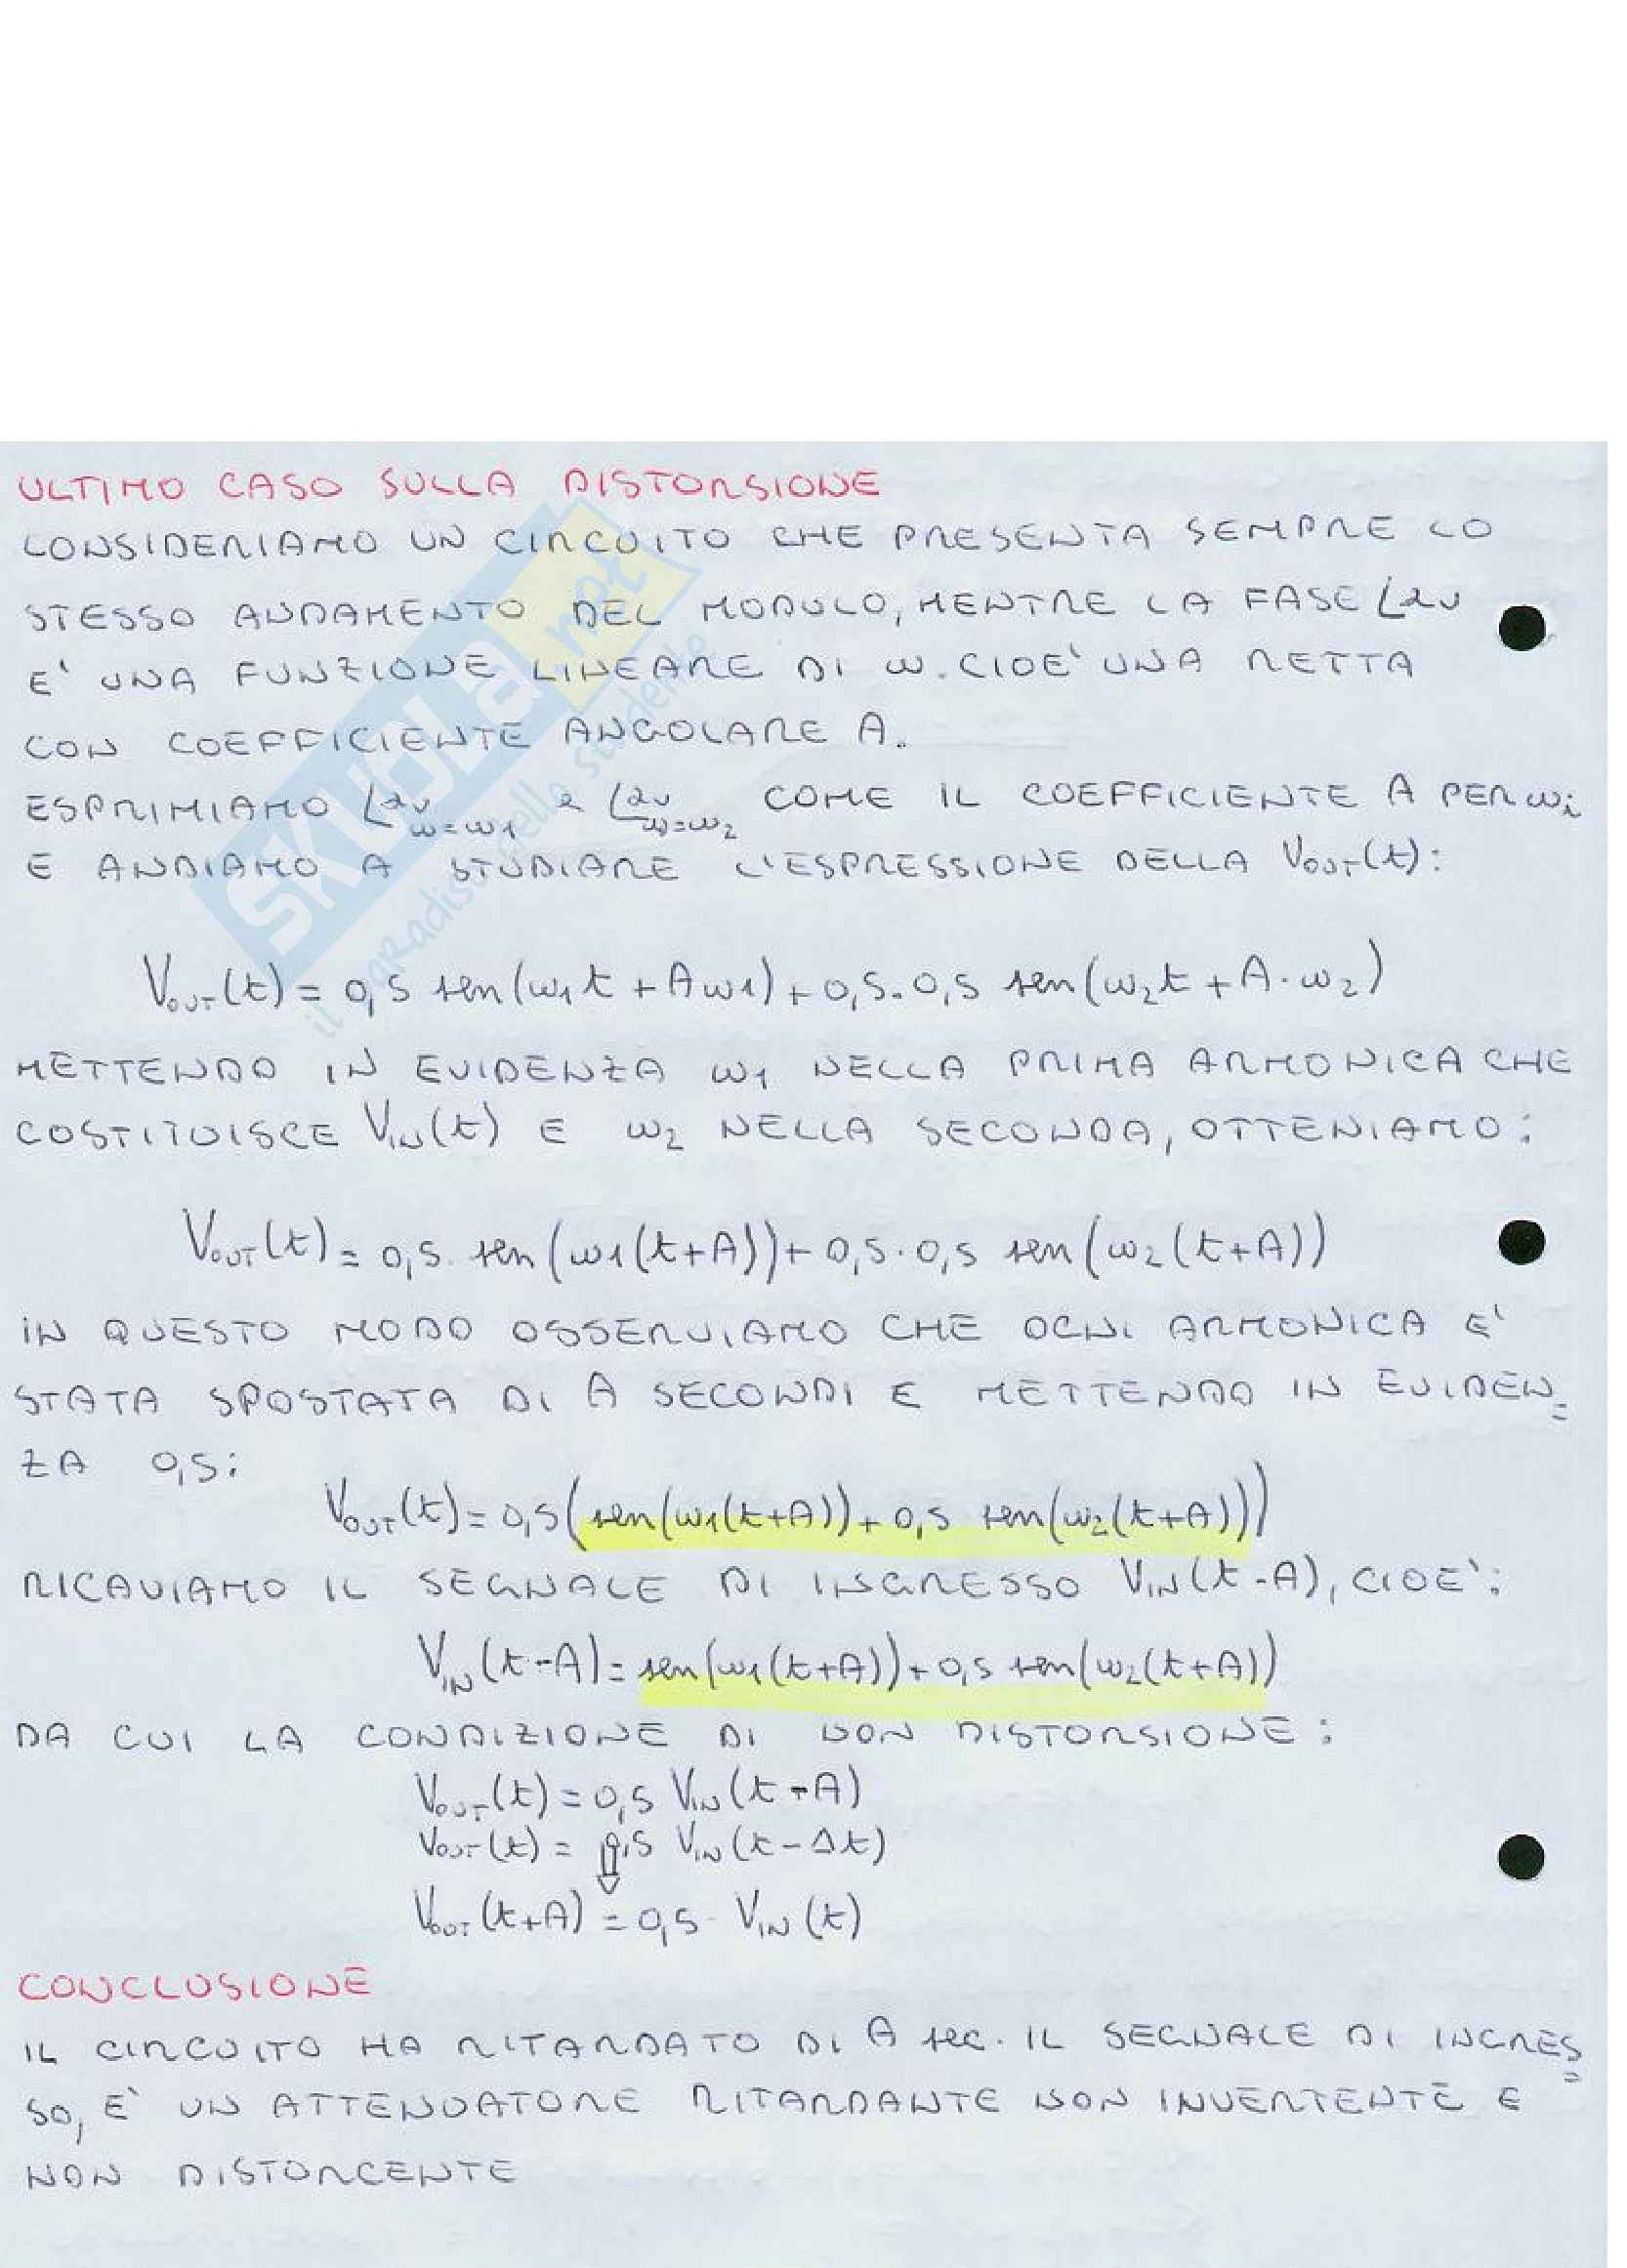 ULTIMO CASO SULLA DISTORSIONE
CONSIDERIAMO UN CIRCUITO CHE PRESENTA SEMPRE LO
STESSO ANDAMENTO DEL MODULO, MENTRE LA FASE ∠av
E' UNA FUNZIONE LINEARE DI ω. CIOE' UNA RETTA
CON COEFFICIENTE ANGOLARE A.
ESPRIMIAMO ∠av ω=ω1 e ∠av ω=ω2 COME IL COEFFICIENTE A PER ωi
E ANDIAMO A STUDIARE L'ESPRESSIONE DELLA VOUT(t):
VOUT(t) = 0,5 sen(ω1t + Aω1) + 0,5.0,5 sen(ω2t + A·ω2)
METTENDO IN EVIDENZA ω1 NELLA PRIMA ARMONICA CHE
COSTITUISCE VIN(t) E ω2 NELLA SECONDA, OTTENIAMO:
VOUT(t) = 0,5. sen(ω1(t+A)) + 0,5·0,5 sen(ω2(t+A))
IN QUESTO MODO OSSERVIAMO CHE OGNI ARMONICA E'
STATA SPOSTATA DI A SECONDI E METTENDO IN EVIDEN=
ZA 0,5:
VOUT(t) = 0,5(sen(ω1(t+A)) + 0,5 sen(ω2(t+A)))
RICAVIAMO IL SEGNALE DI INGRESSO VIN(t-A), CIOE':
VIN(t-A) = sen(ω1(t+A)) + 0,5 sen(ω2(t+A))
DA CUI LA CONDIZIONE DI NON DISTORSIONE:
VOUT(t) = 0,5 VIN(t-A)
VOUT(t) = 0,5 VIN(t-Δt)
⇓
VOUT(t+A) = 0,5· VIN(t)
CONCLUSIONE
IL CIRCUITO HA RITARDATO DI A sec. IL SEGNALE DI INGRES=
SO, E' UN ATTENUATORE RITARDANTE NON INVERTENTE E
NON DISTORCENTE
SKUOLA.net
il paradiso dello studente